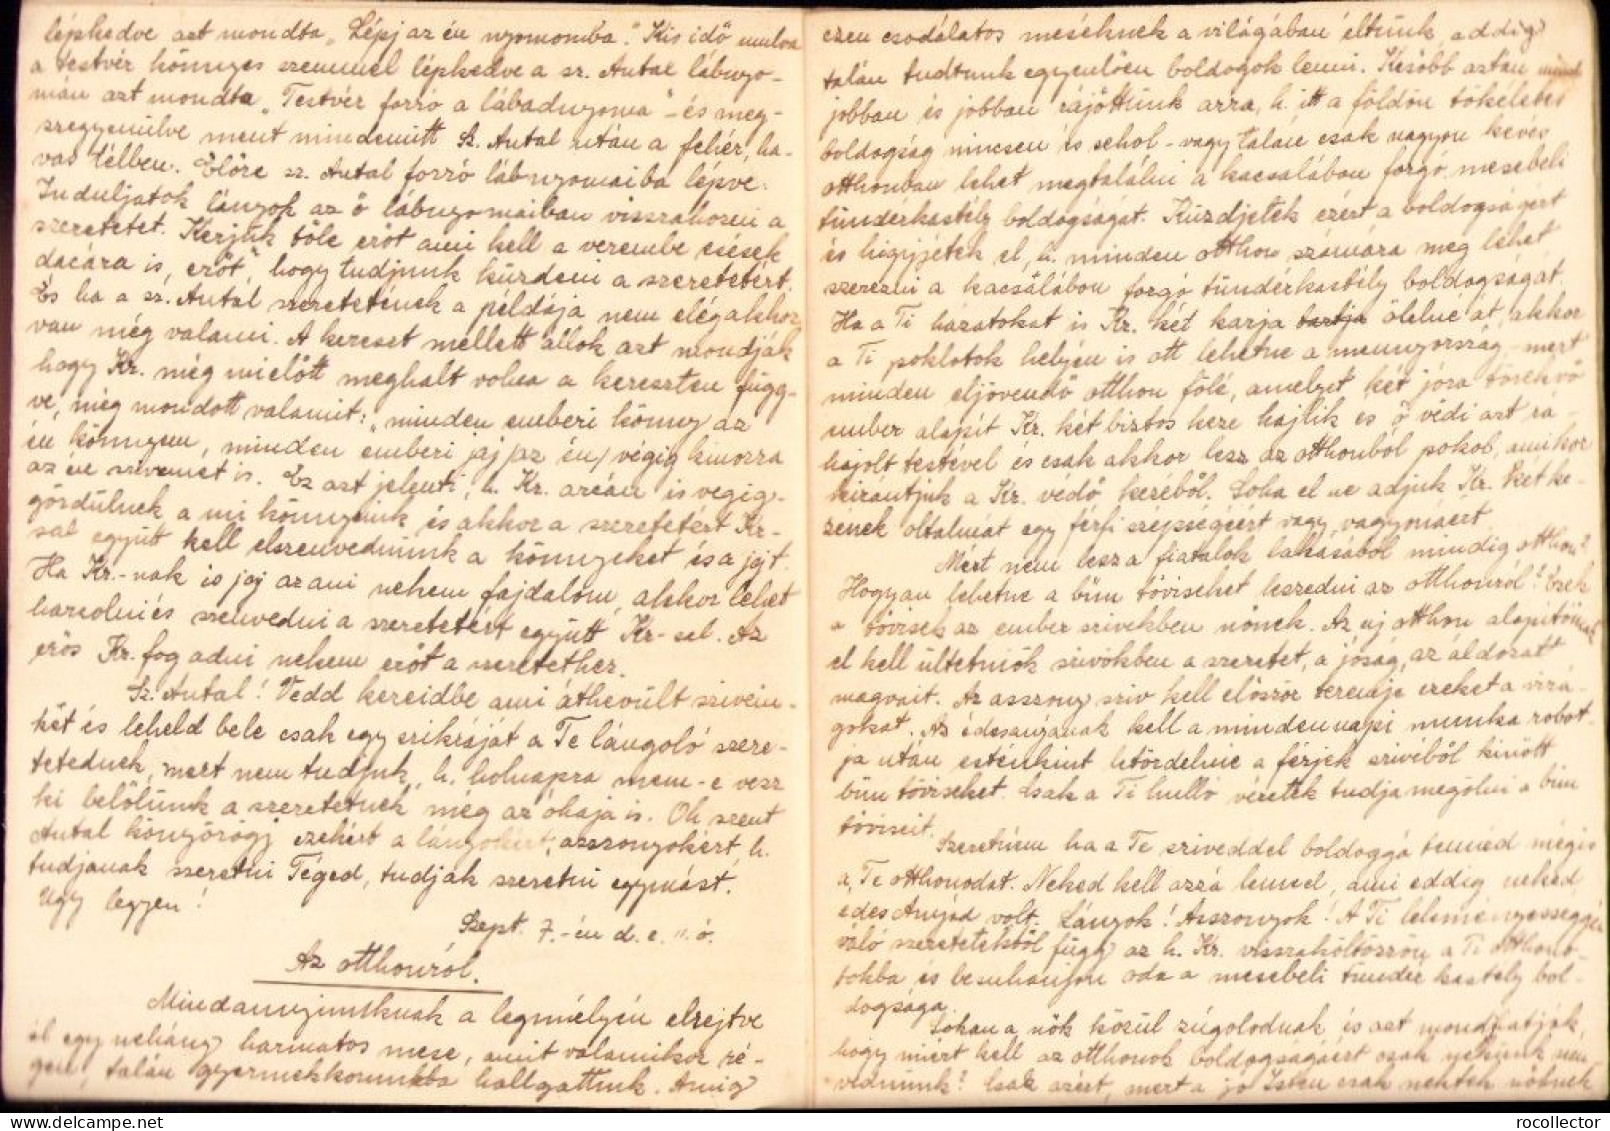 lépkedve azt mondta „Lépj az én nyomomba." Kis idő mulva
a testvér könnyes szemmel lépkedve a sz. Antal lábnyo-
mán azt mondta „Testvér forró a lábadnyoma" – és meg-
szegyenülve ment mindenütt Sz. Antal után a fehér, ha-
vas télben. Előre sz. Antal forró lábnyomaiba lépve.
Induljatok lányok az ő lábnyomaiban visszahozni a
szeretetet. Kérjük tőle erőt ami kell a verembe esések
dacára is, erőt, hogy tudjunk küzdeni a szeretetért.
És ha a sz. Antal szeretetének a példája nem elég akkor
van még valami. A kereszt mellett állok azt mondják
hogy Kr. még mielőtt meghalt volna a kereszten függ-
ve, még mondott valamit: „minden emberi könny az
én könnyem, minden emberi jaj az én, végig kinozza
az én szivemet is. Ez azt jelenti, h. Kr. arcán is végig-
gördülnek a mi könnyeink és akkor a szeretetért Kr-
sal együtt kell elszenvednünk a könnyeket és a jajt.
Ha Kr.-nak is jaj az ami nekem fajdalom, akkor lehet
harcolni és szenvedni a szeretetért együtt Kr-sal. Az
erős Kr. fog adni nekem erőt a szeretethez.
Sz. Antal! Vedd kezeidbe ami áthevült szivein-
ket és leheld bele csak egy szikráját a Te lángoló szere-
tetednek, mert nem tudjuk, h. holnapra nem-e vesz
ki belőlünk a szeretetnek még az óhaja is. Oh szent
Antal könyörögj ezekért a lányokért, asszonyokért, h.
tudjanak szeretni Téged, tudják szeretni egymást.
Ugy legyen!
Szept. 7.-én d. e. 11. ó.
Az otthonról.
Mindannyiunknak a legmélyén elrejtve
él egy nehány harmatos mese, amit valamikor ré-
gen, talán gyermekkorunkba hallgattunk. Amig
ezen csodálatos meséknek a világában éltünk, addig
talán tudtunk egyenlően boldogok lenni. Később aztán mind
jobban és jobban rájöttünk arra, h. itt a földön tökéletes
boldogság nincsen is sehol – vagy talán csak nagyon kevés
otthonban lehet megtalálni a kacsalábon forgó, mesebeli
tündérkastély boldogságát. Küzdjetek ezért a boldogságért
és higyjétek el, h. minden otthon számára meg lehet
szerezni a kacsalábon forgó tündérkastély boldogságát.
Ha a Ti házatokat is Kr. két karja tartja ölelné át, akkor
a Ti poklotok helyén is ott lehetne a mennyország – mert
minden eljövendő otthon fölé, amelyet két jóra törekvő
ember alapít Kr. két biztos keze hajlik és ő védi azt rá-
hajolt testével és csak akkor lesz az otthonból pokol, amikor
kirántjuk a Kr. védő kezéből. Soha el ne adjuk Kr. két ke-
zének oltalmát egy férfi szépségéért vagy vagyonáért.
Mért nem lesz a fiatalok lakásából mindig otthon?
Hogyan lehetne a bün töviseket leszedni az otthonról? Ezek
a tövisek az ember szivekben nőnek. Az uj otthon alapítóinak
el kell ültetniök szivökben a szeretet, a jóság, az áldozat
magvait. Az asszony sziv kell először teremje ezeket a virá-
gokat. Az édesanyának kell a mindennapi munka robot-
ja után esténkint letördelnie a férjek szivéből kinőtt
bün töviseket. Csak a Ti hulló véretek tudja megölni a bün
töviseit.
Szeretném ha a Te sziveddel boldoggá tennéd mégis
a Te otthonodat. Neked kell azzá lenned, ami eddig neked
édes Anyád volt. Lányok! Asszonyok! A Ti leleményességgel
való szeretetektől függ az h. Kr. visszaköltözzön a Ti otthono-
tokba és besuhanjon oda a mesebeli tünder kastély bol-
dogsága.
Sokan a nők közül zúgolodnak és azt mondhatják,
hogy miért kell az otthonok boldogságáért csak nekünk szen-
vednünk? Csak azért, mert a jó Isten csak nektek nőknek